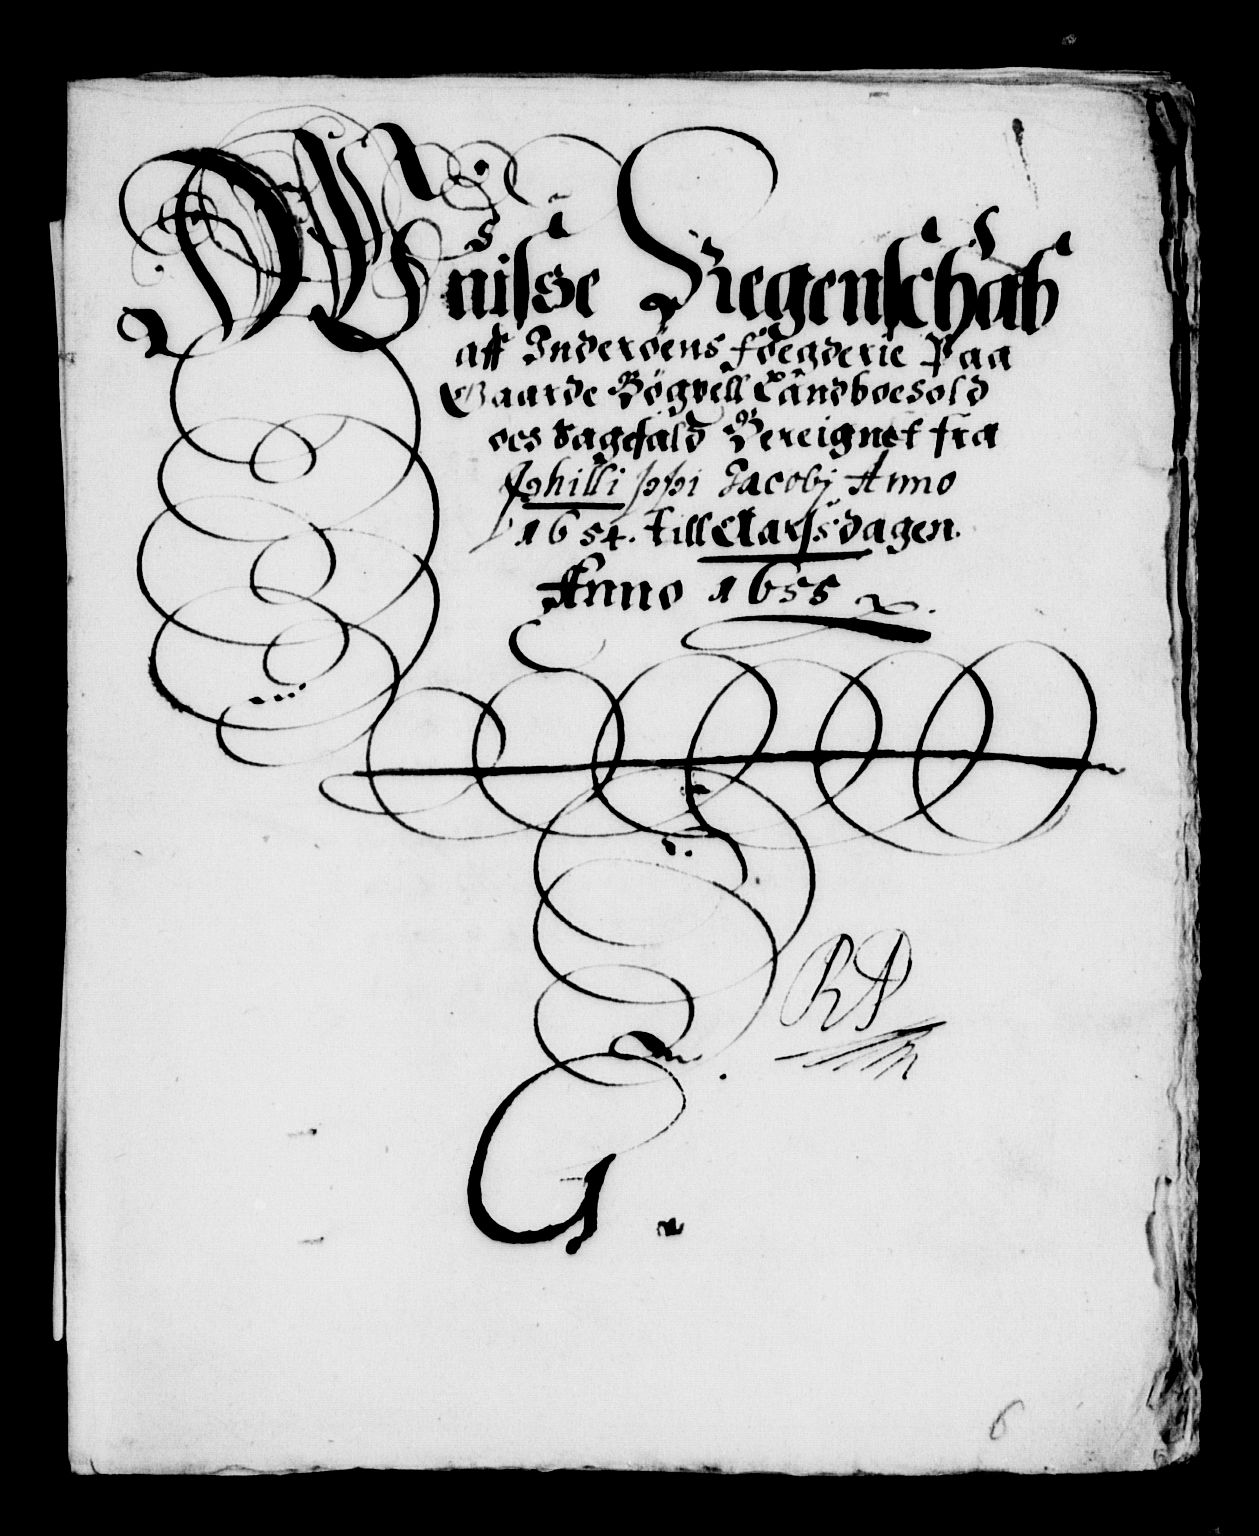 Wnisse Regenschab
aff Inderöens fögderie Paa
Gaarde Bögvell Landboesold
oes Sagefald Bereignet fra
Philli ppi Jacobj Anno
1654. till dagen.
Anno 1655
RP
6